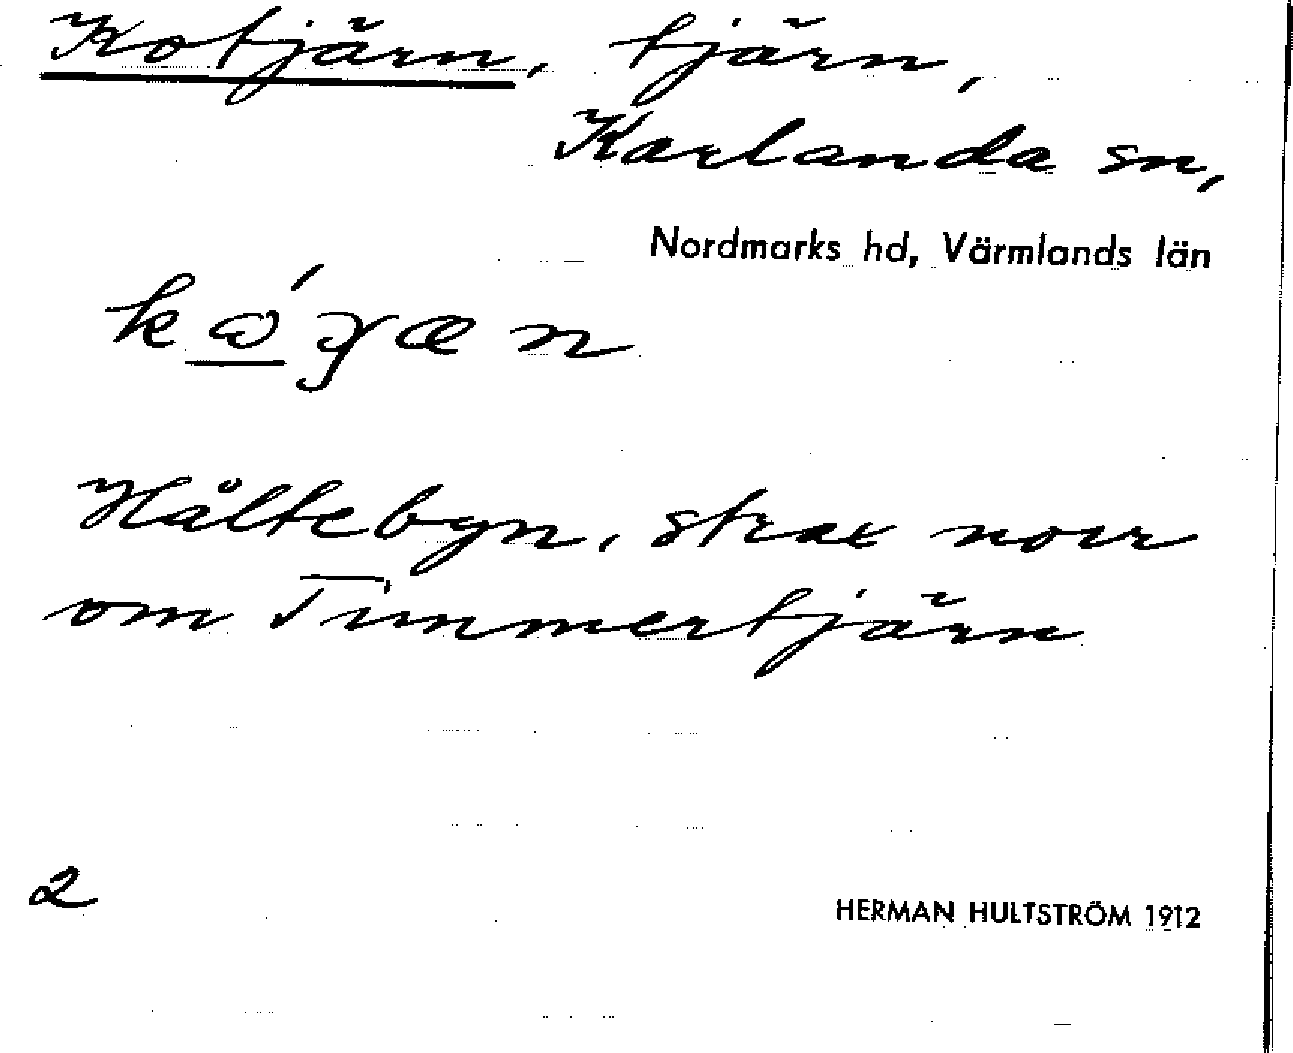 Kotjärn, tjärn,
Karlanda sn,
Nordmarks hd, Värmlands län
Hältebyn, strax norr
om Timmertjärn
2
HERMAN HULTSTRÖM 1912